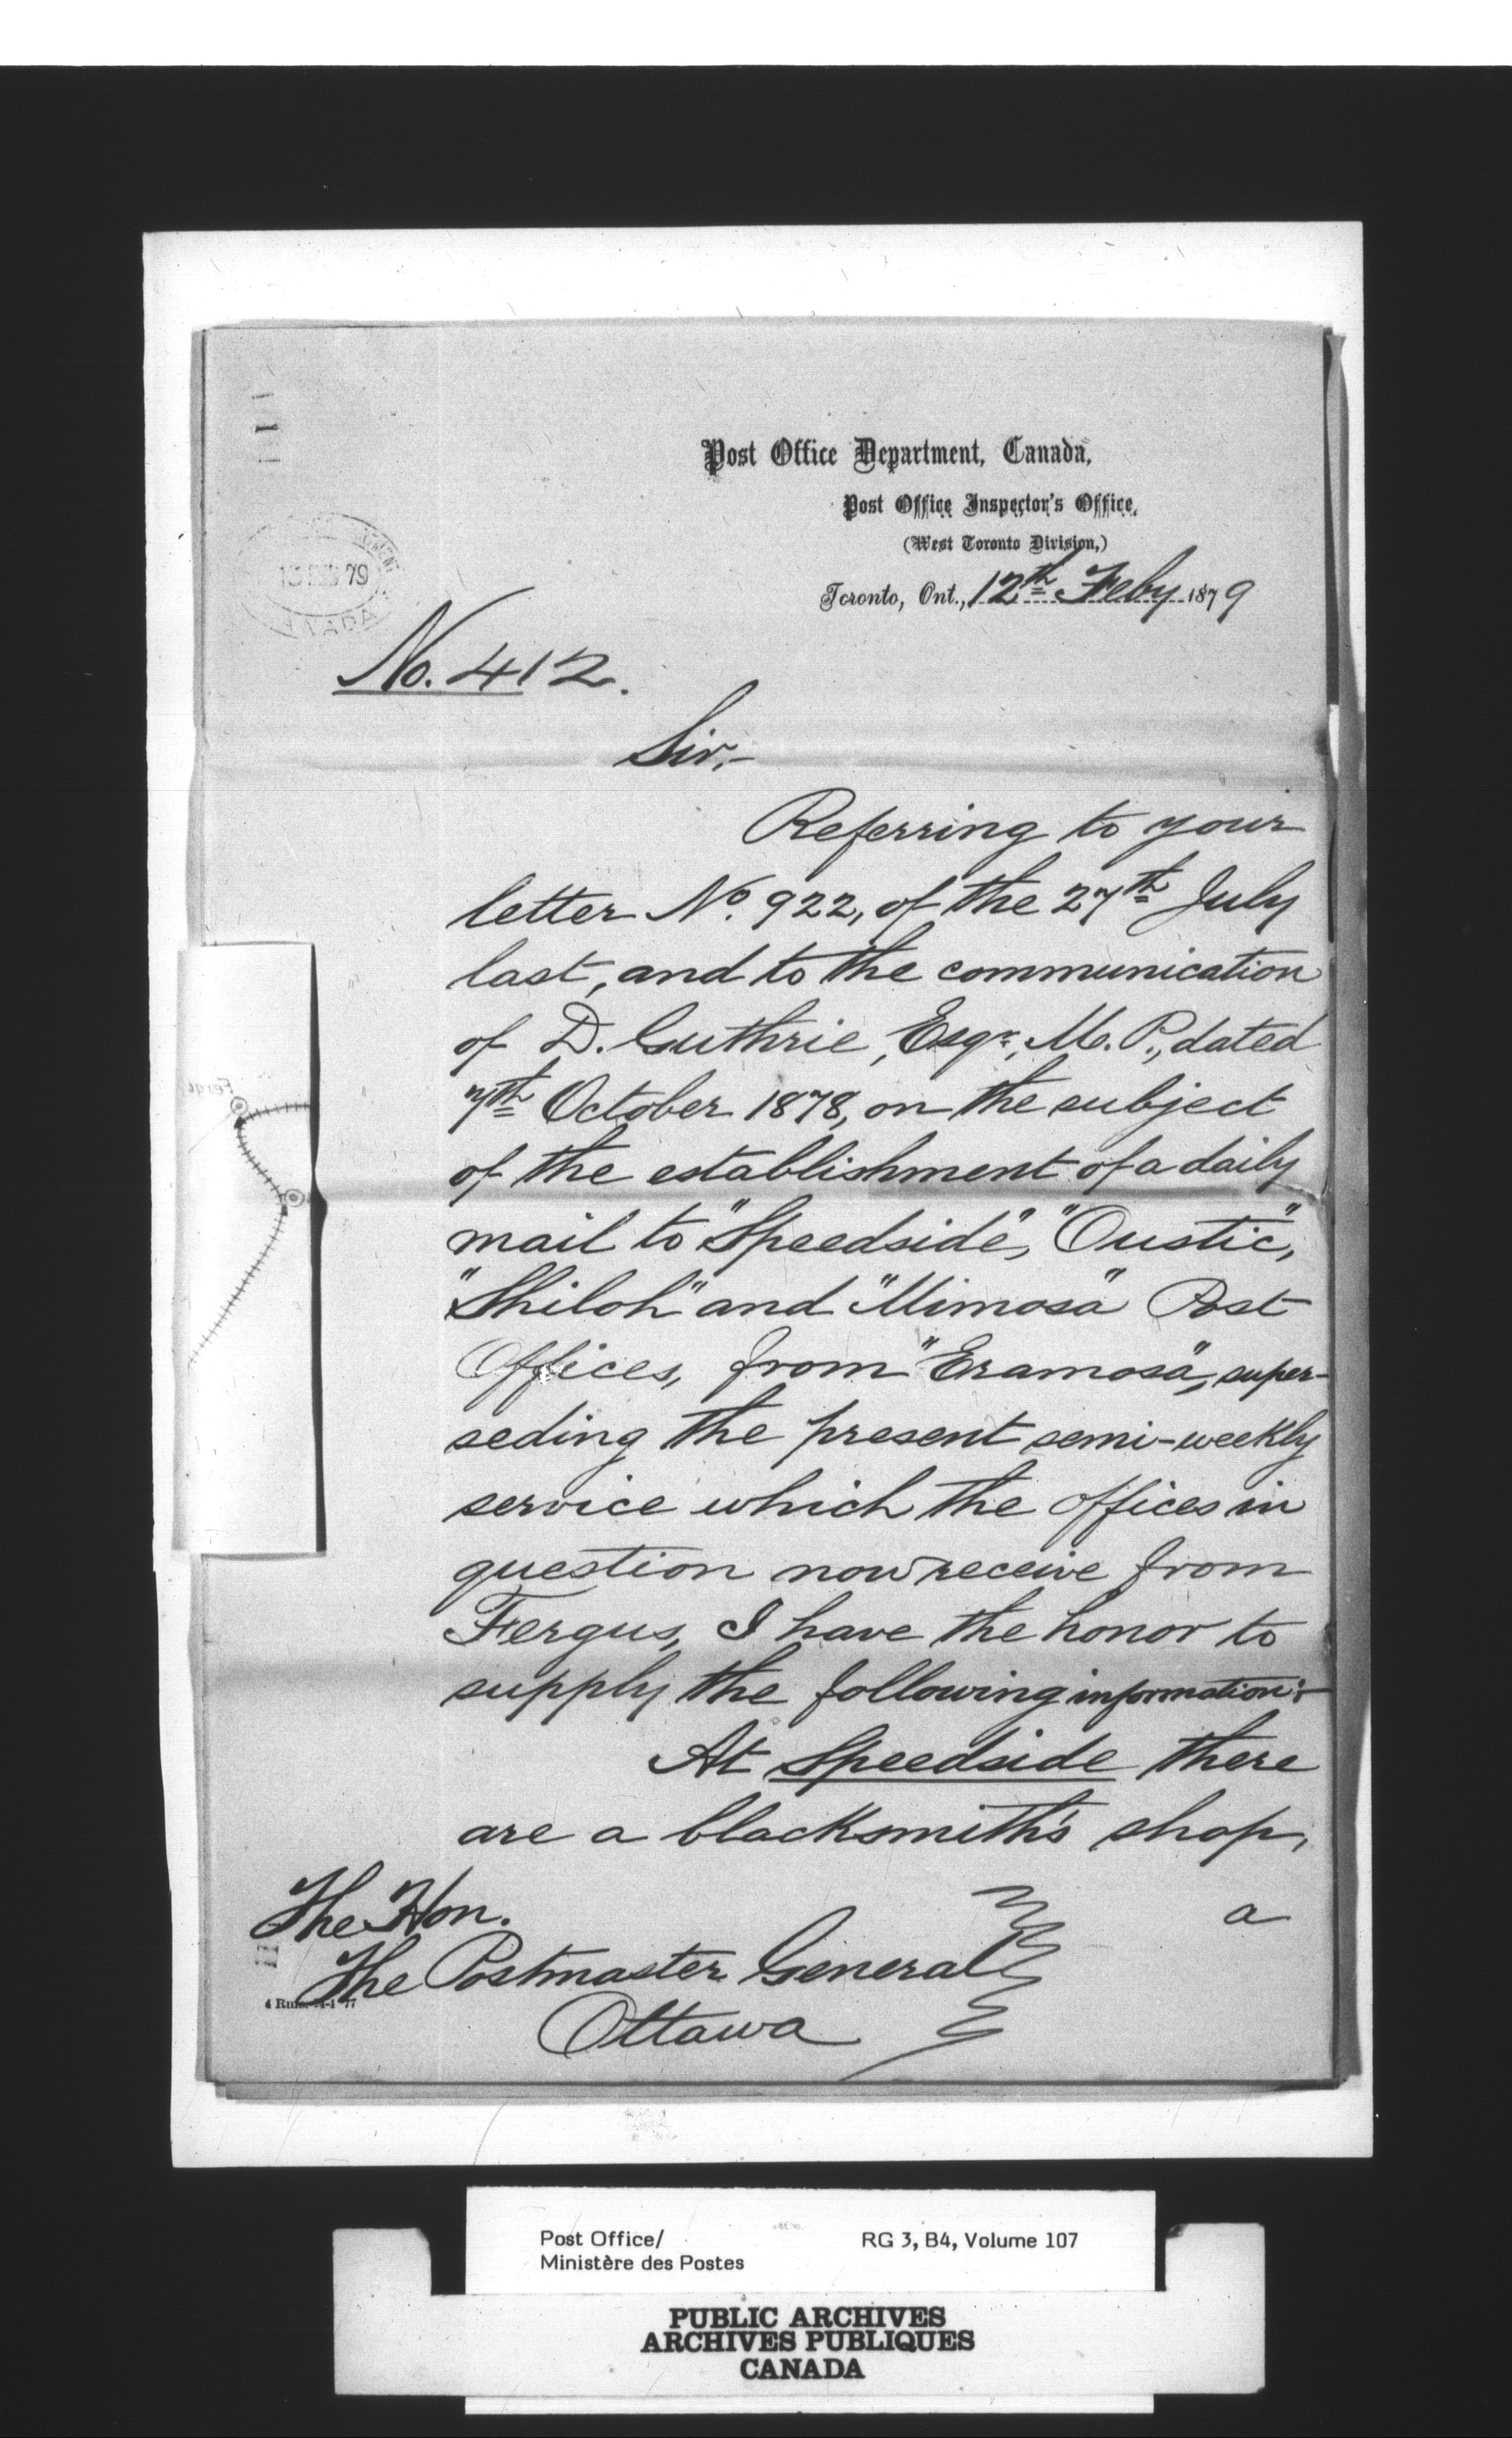 Post Office Department, Canada,
Post Office Inspector's Office,
(West Toronto Division,)
Toronto, Ont., 12th Feby 1879
79
No. 412.
Sir,-
Referring to your
letter No. 922, of the 27th July
last, and to the communication
of D. Guthrie, Esqr., M.P., dated
7th October 1878, on the subject
of the establishment of a daily
mail to "Speedside", "Oustic",
"Shiloh" and "Mimosa" Post
Offices, from "Eramosa", super-
seding the present semi-weekly
service which the offices in
question now receive from
Fergus, I have the honor to
supply the following information:-
At Speedside there
are a blacksmith's shop,
a
The Hon.
The Postmaster General
Ottawa
Post Office/
Ministère des Postes
RG 3, B4, Volume 107
PUBLIC ARCHIVES
ARCHIVES PUBLIQUES
CANADA